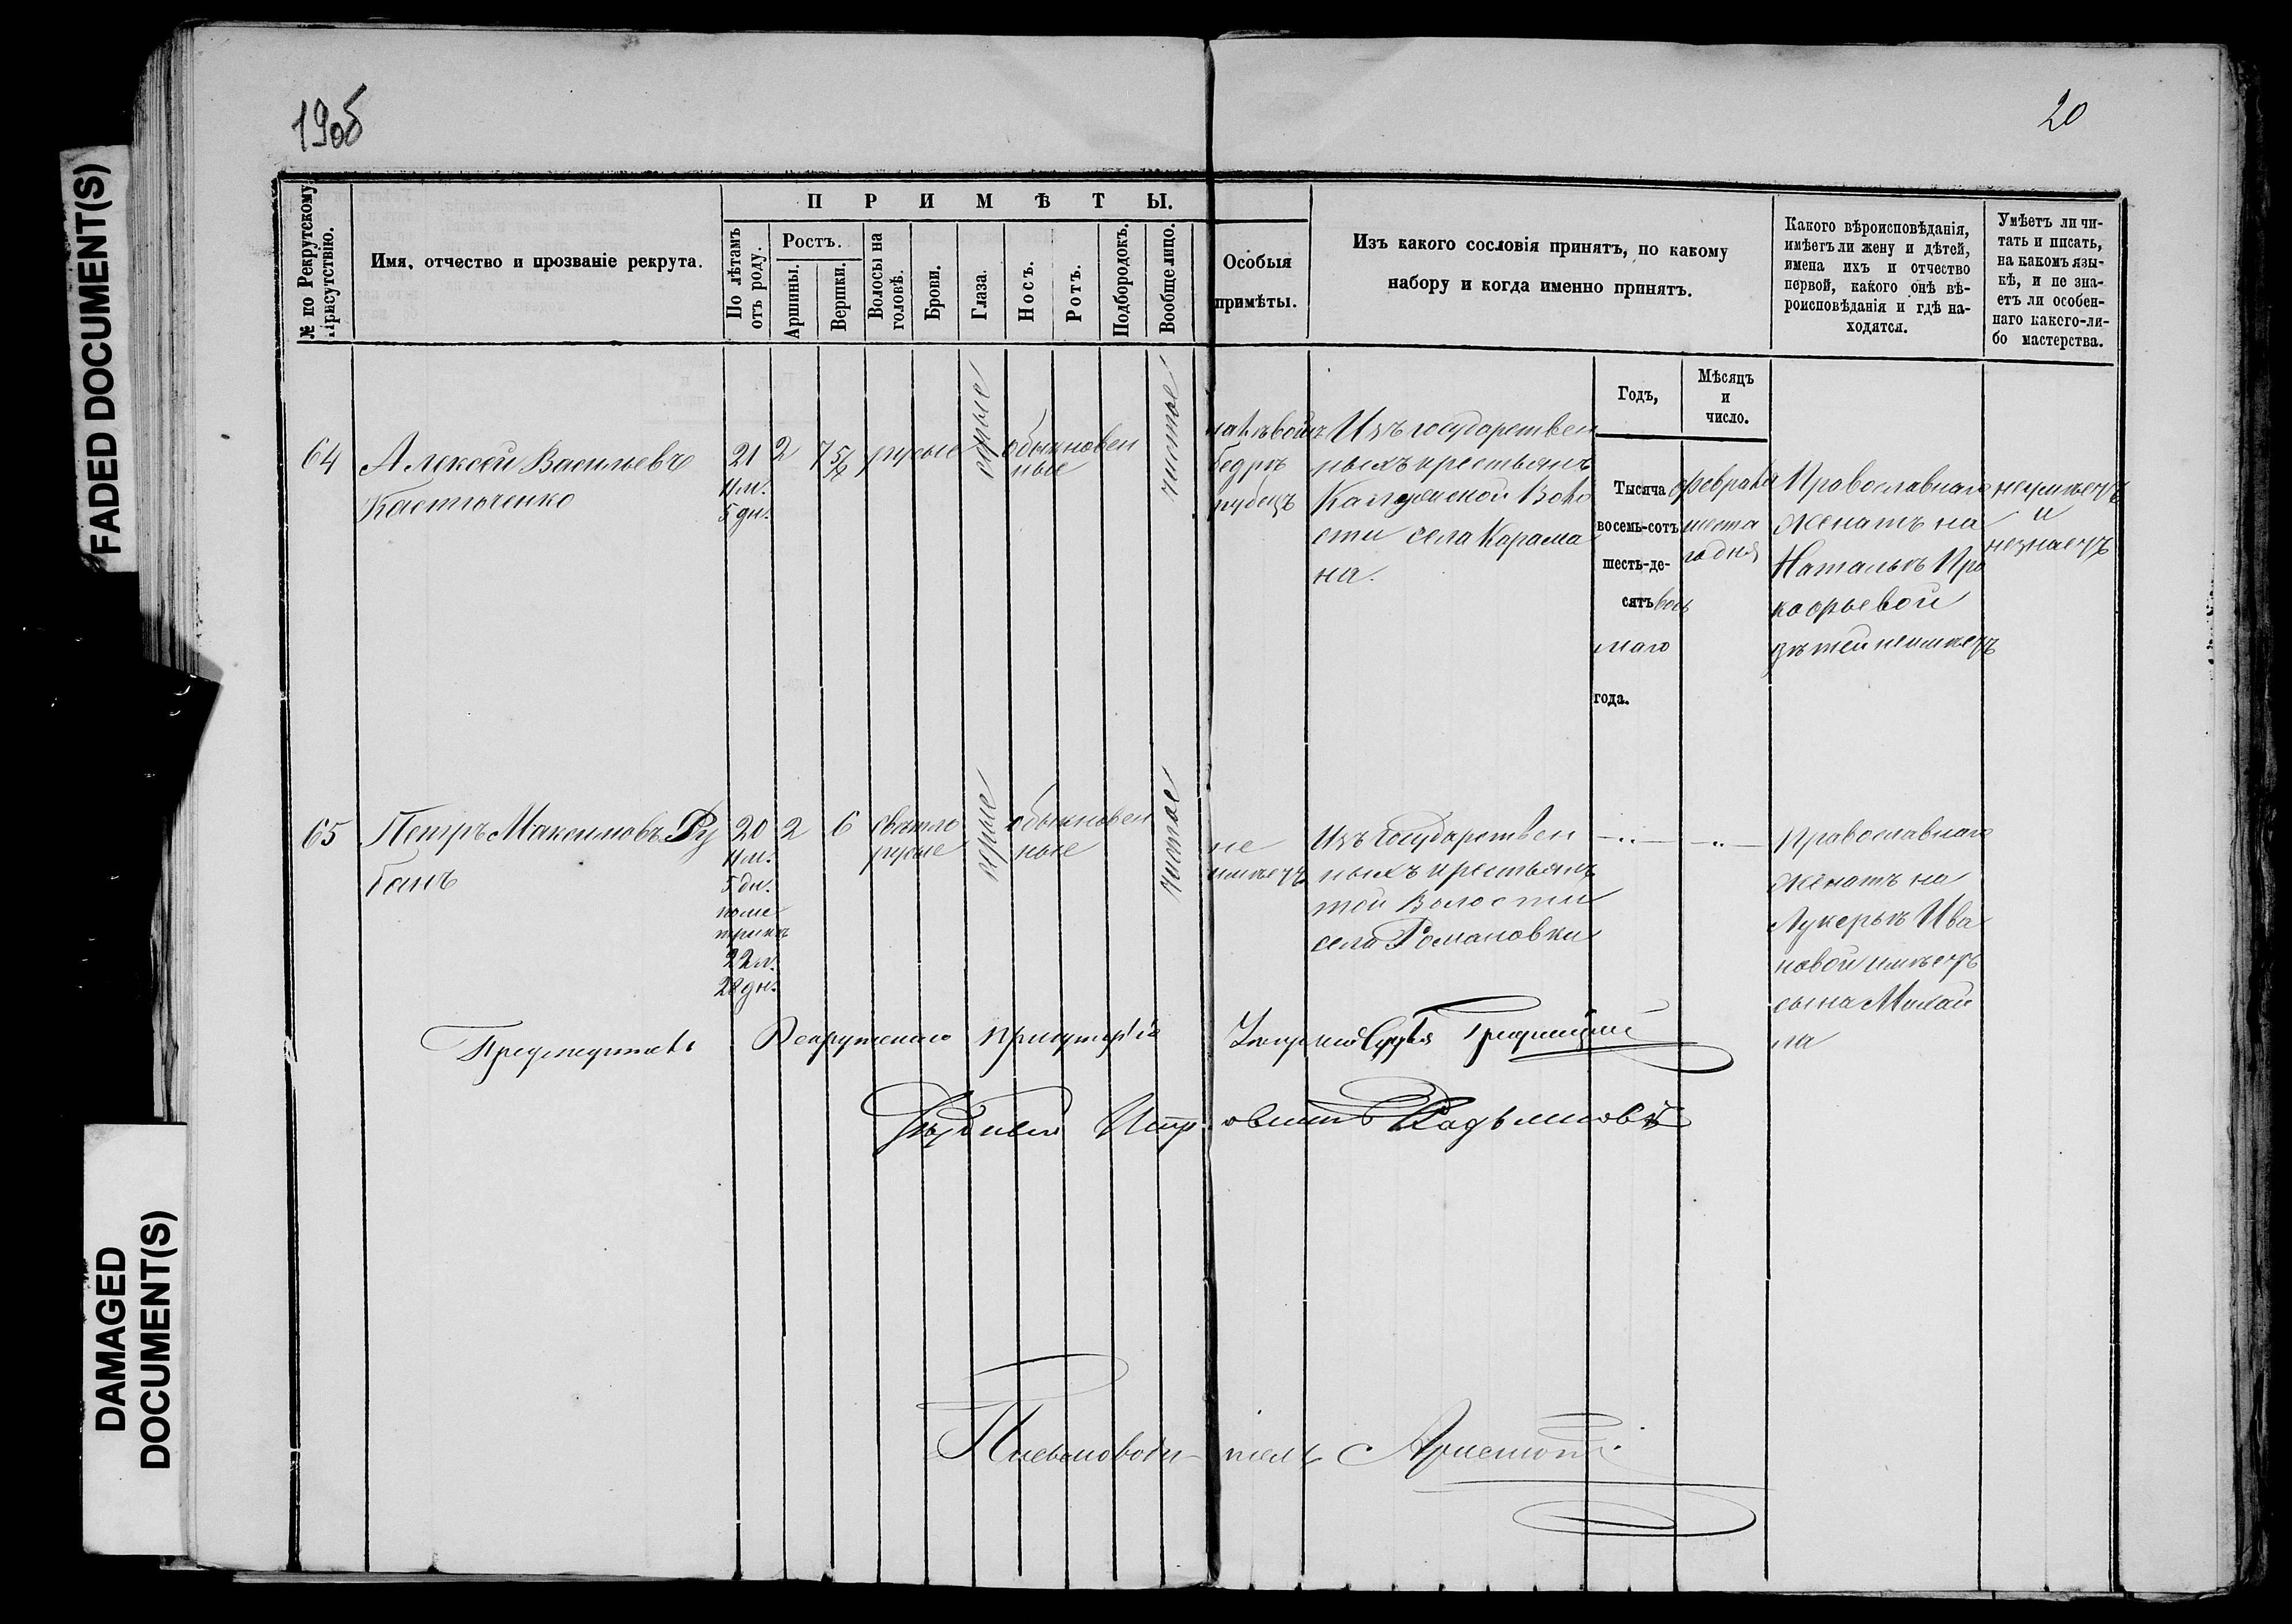 FADED DOCUMENT(S)
DAMAGED
DOCUMENT(S)
19об
20
№ по Рекрутскому
Присутствію.
Имя, отчество и прозваніе рекрута.
ПРИМѢТЫ.
По лѣтамъ
отъ роду.
Ростъ.
Аршины.
Вершки.
Волосы на
головѣ.
Брови.
Глаза.
Носъ.
Ротъ.
Подбородокъ.
Вообще лицо.
Особыя
примѣты.
Изъ какого сословія принятъ, по какому
набору и когда именно принятъ.
Какого вѣроисповѣданія,
имѣетъ ли жену и дѣтей,
имена ихъ и отчество
первой, какого онѣ вѣ-
роисповѣданія и гдѣ на-
ходятся.
Умѣетъ ли чи-
тать и писать,
на какомъ язы-
кѣ, и не зна-
етъ ли особен-
наго какого-ли-
бо мастерства.
Годъ,
Мѣсяцъ
и
число.
64
Алексей Васильевъ
21
5 дн.
2
7 5/8
русые
серые
обыкновен
ные
чистое
на лѣвомъ
бедрѣ
рубецъ
Изъ государствен
ныхъ крестьянъ
Воло
сти села Карама
на.
Тысяча
восемь-сотъ
шесть-де-
сятъ вось
маго
года.
февраля
шеста
го дня
Православнаго
женатъ на
Натальѣ Про
кофьевой
дѣтей неимѣетъ
неумѣетъ
и
незнаетъ
65
Петръ Максимовъ Ру
банъ
20
5 дн.
по ме
трикѣ
28 дн.
2
6
свѣтло
русые
серые
обыкновен
ные
чистое
не
имѣетъ
Изъ государствен
ныхъ крестьянъ
той Волости
села Романовки
—"—
—"—
Православнаго
женатъ на
Лукерьѣ Ива
новой имѣетъ
сына Михаи
ла
Рекрутскаго Присутствія
Судья